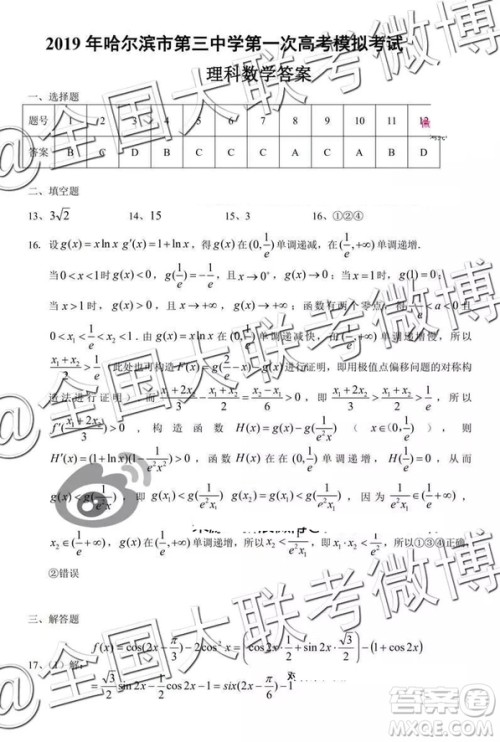 2019 年哈尔滨市第三中学第一次高考模拟考试
理科数学答案
一、选择题
题号 1 2 3 4 5 6 7 8 9 10 11 12
答案 B C D B C C A C A B D
二、填空题
13、3√2 14、15 15、3 16、①②④
16. 设 g(x)=x ln x g′(x)=1+ln x，得 g(x) 在 (0,1/e) 单调递减，在 (1/e,+∞) 单调递增.
当 0<x<1 时 g(x)<0，g(1/e)=-1/e，且 x→0⁺，g(x)→0；当 x=1 时，g(1)=0，
当 x>1 时，g(x)>0，且 x→+∞，g(x)→+∞；函数有两个零点，即 <a<0
0<x₁<1/e<x₂<1．由 g(x)=x ln x 在 (0,1/e) 单调递减快，在 (1/e,+∞) 单调递增慢，所以
(x₁+x₂)/2>1/e（此处也可构造 F(x)=g(2/e-x)-g(x) 进行证明，即用极值点偏移问题的对称
构造法进行证明）而 (x₁+2x₂)/3-(x₁+x₂)/2=(x₂-x₁)/6>0，即 (x₁+2x₂)/3>(x₁+x₂)/2>1/e
f′((x₁+2x₂)/3)>0，构造函数 H(x)=g(x)-g(1/(e²x)) (x∈(0,1/e))，则
H′(x)=(1+ln x)(1-1/(e²x²))>0，函数 H(x) 在在 (0,1/e) 单调递增，从而
g(x)<g(1/(e²x))，即 g(x₁)<g(1/(e²x₁))，即 g(x₂)<g(1/(e²x₁))，因为
x₂∈(1/e,+∞)，g(x) 在 (1/e,+∞) 单调递增，所以 x₂<1/(e²x₁)，x₁x₂<1/e²，所以①③④正确
②错误
三、解答题
17、（1）解：f(x)=cos(2x-π/3)-2cos²x=(cos2x·1/2+sin2x·√3/2)-(1+cos2x)
=√3/2 sin2x-1/2 cos2x-1=six(2x-π/6)-1
@全国大联考微博
@全国大联考微博
@全国大联考微博
答案圈
MXQE.COM